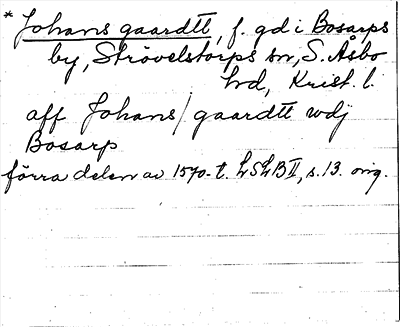 * Johans gaardtt, f. gd i Bosarps
by, Strövelstorps sn, S. Åsbo
hd, Krist. l.
aff Johans/gaardtt wdj
Bosarp
förra delen av 1570-t. LSLB II, s. 13. orig.